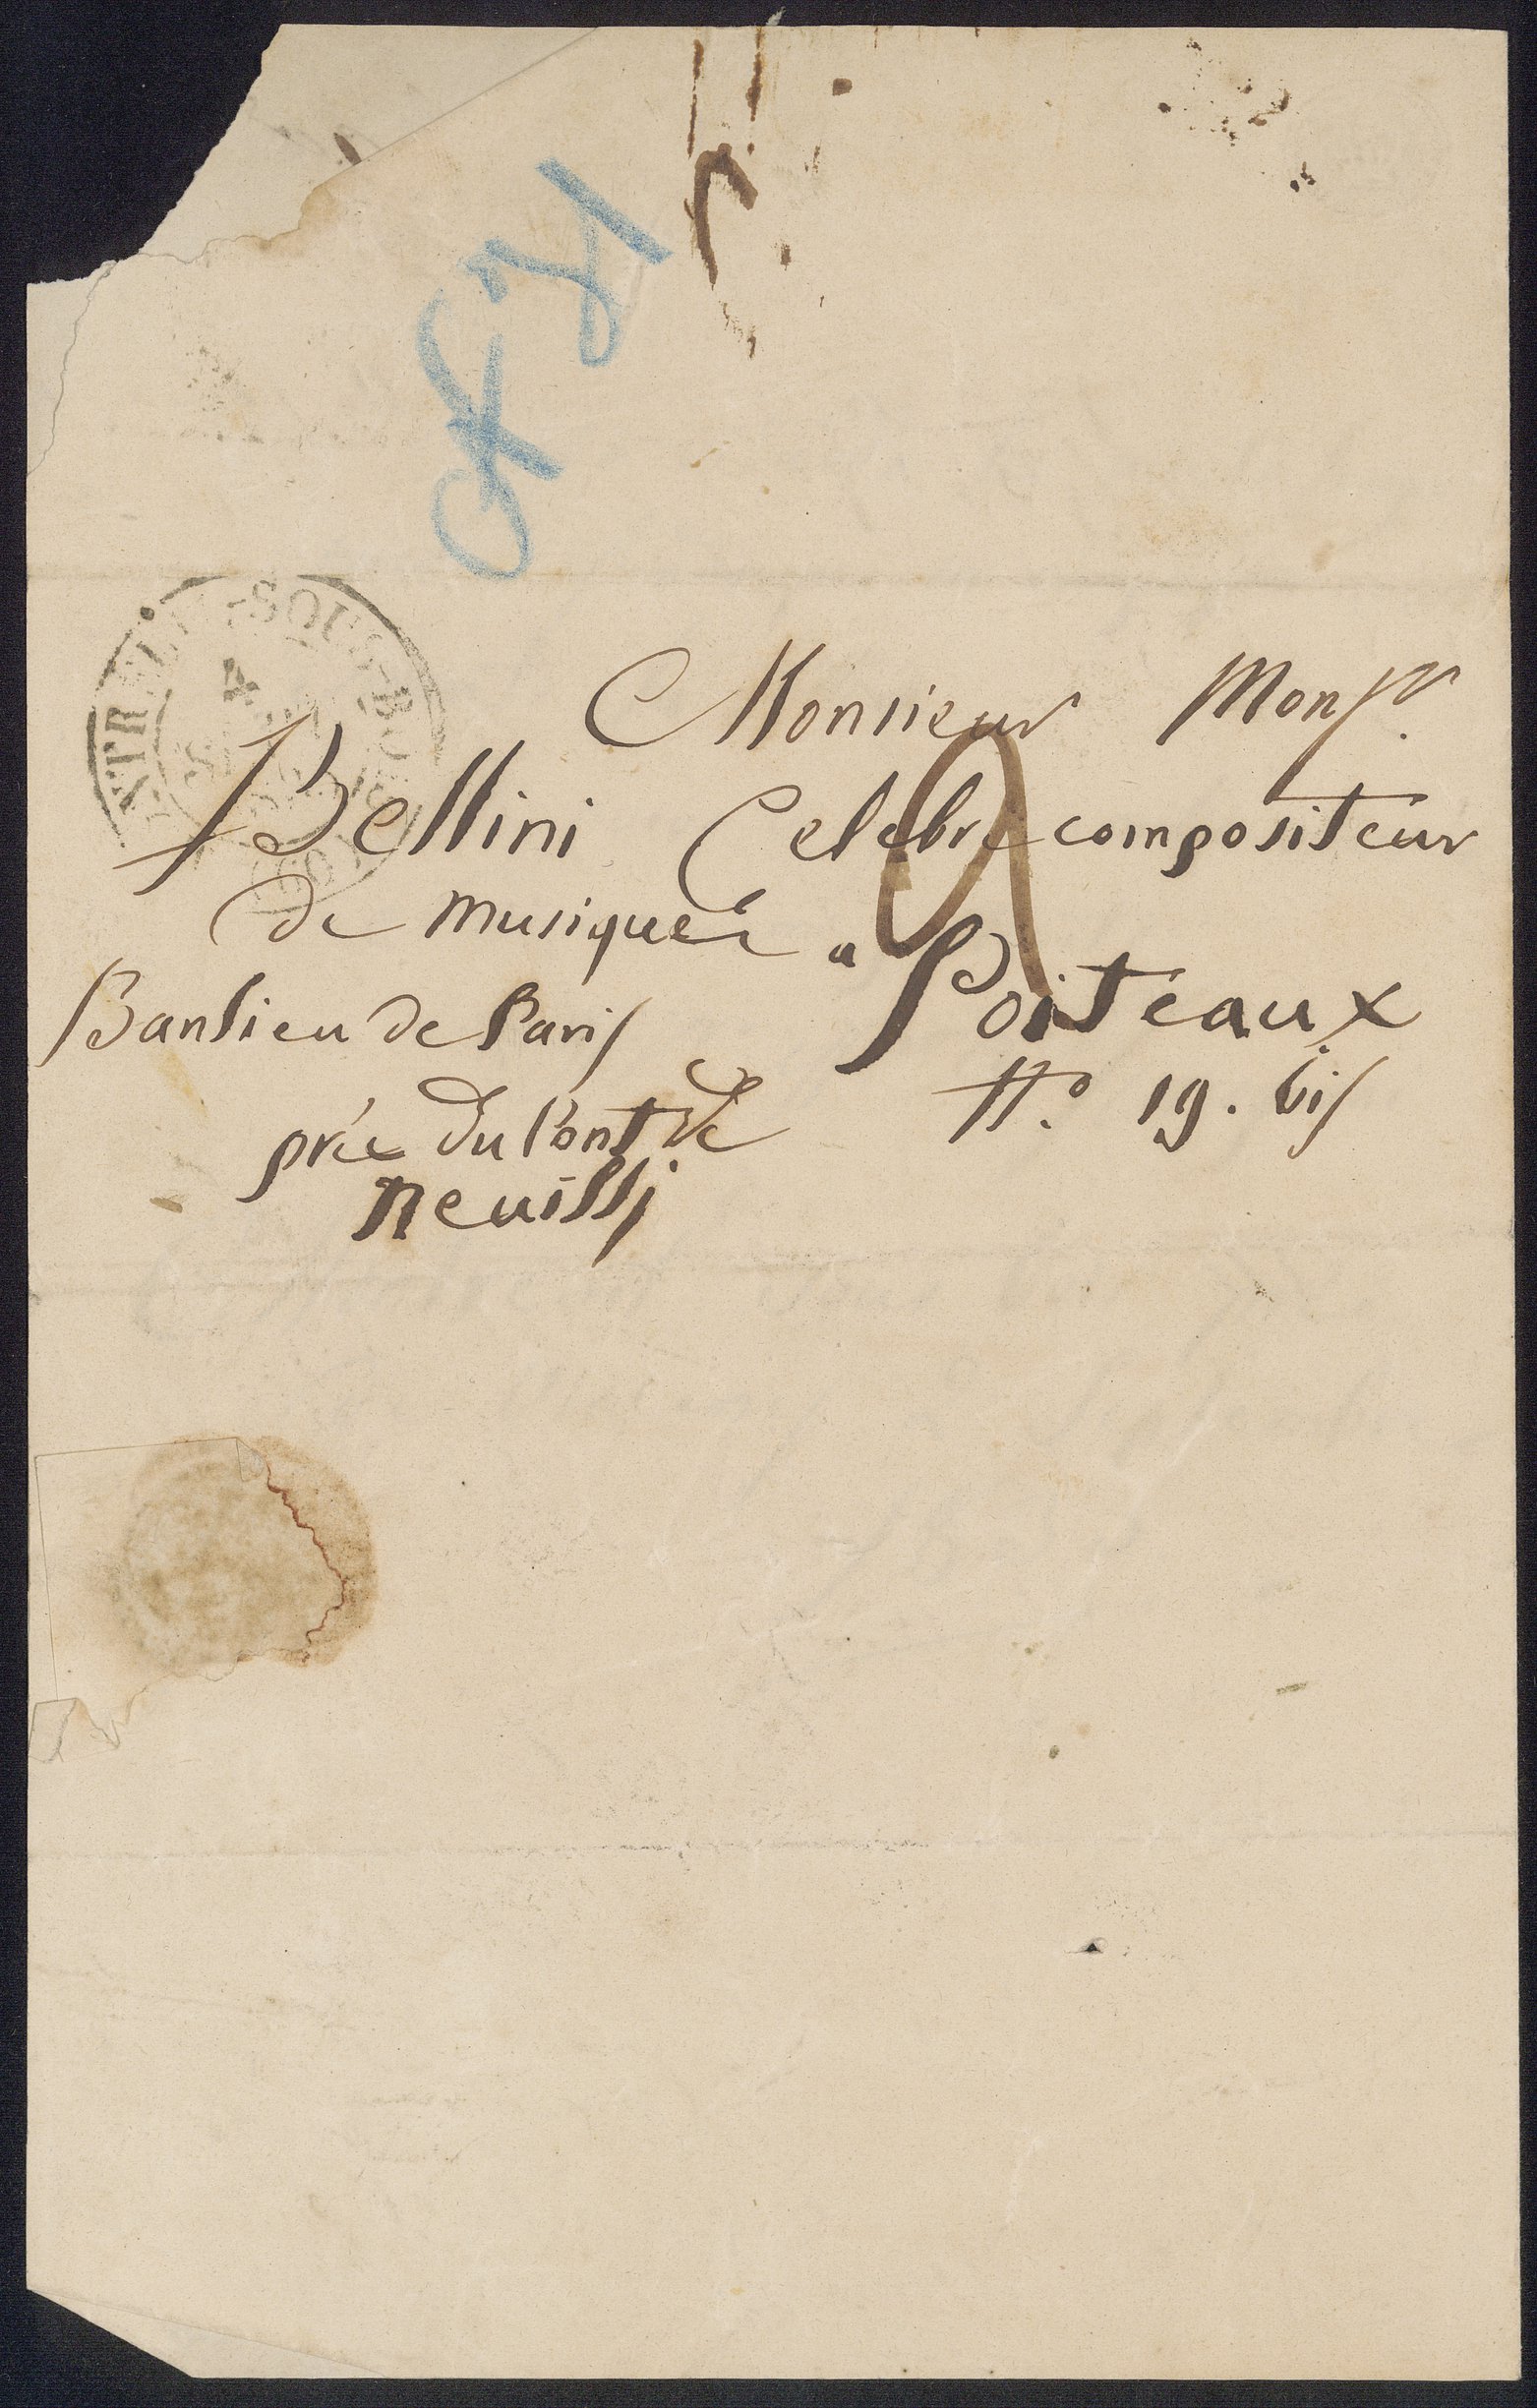 Monsieur Mons.r
Bellini Celebre compositeur
de musique a Poiteaux
Banlieu de Paris
N.º 19. bis
près du Pont de
Neuilly
4